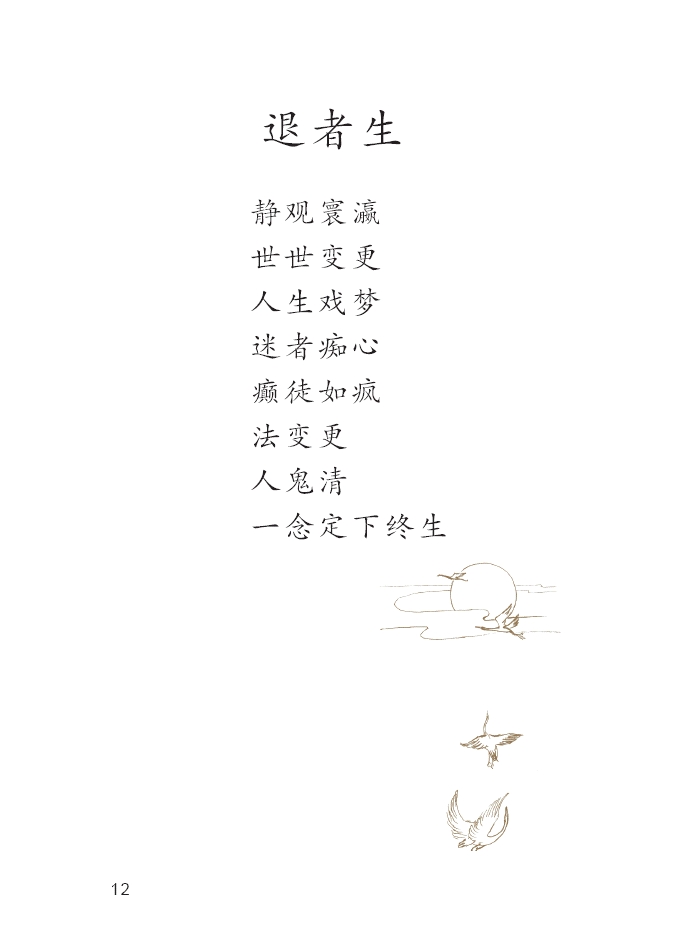 退者生
静观寰瀛
世世变更
人生戏梦
迷者痴心
癫徒如疯
法变更
人鬼清
一念定下终生
12